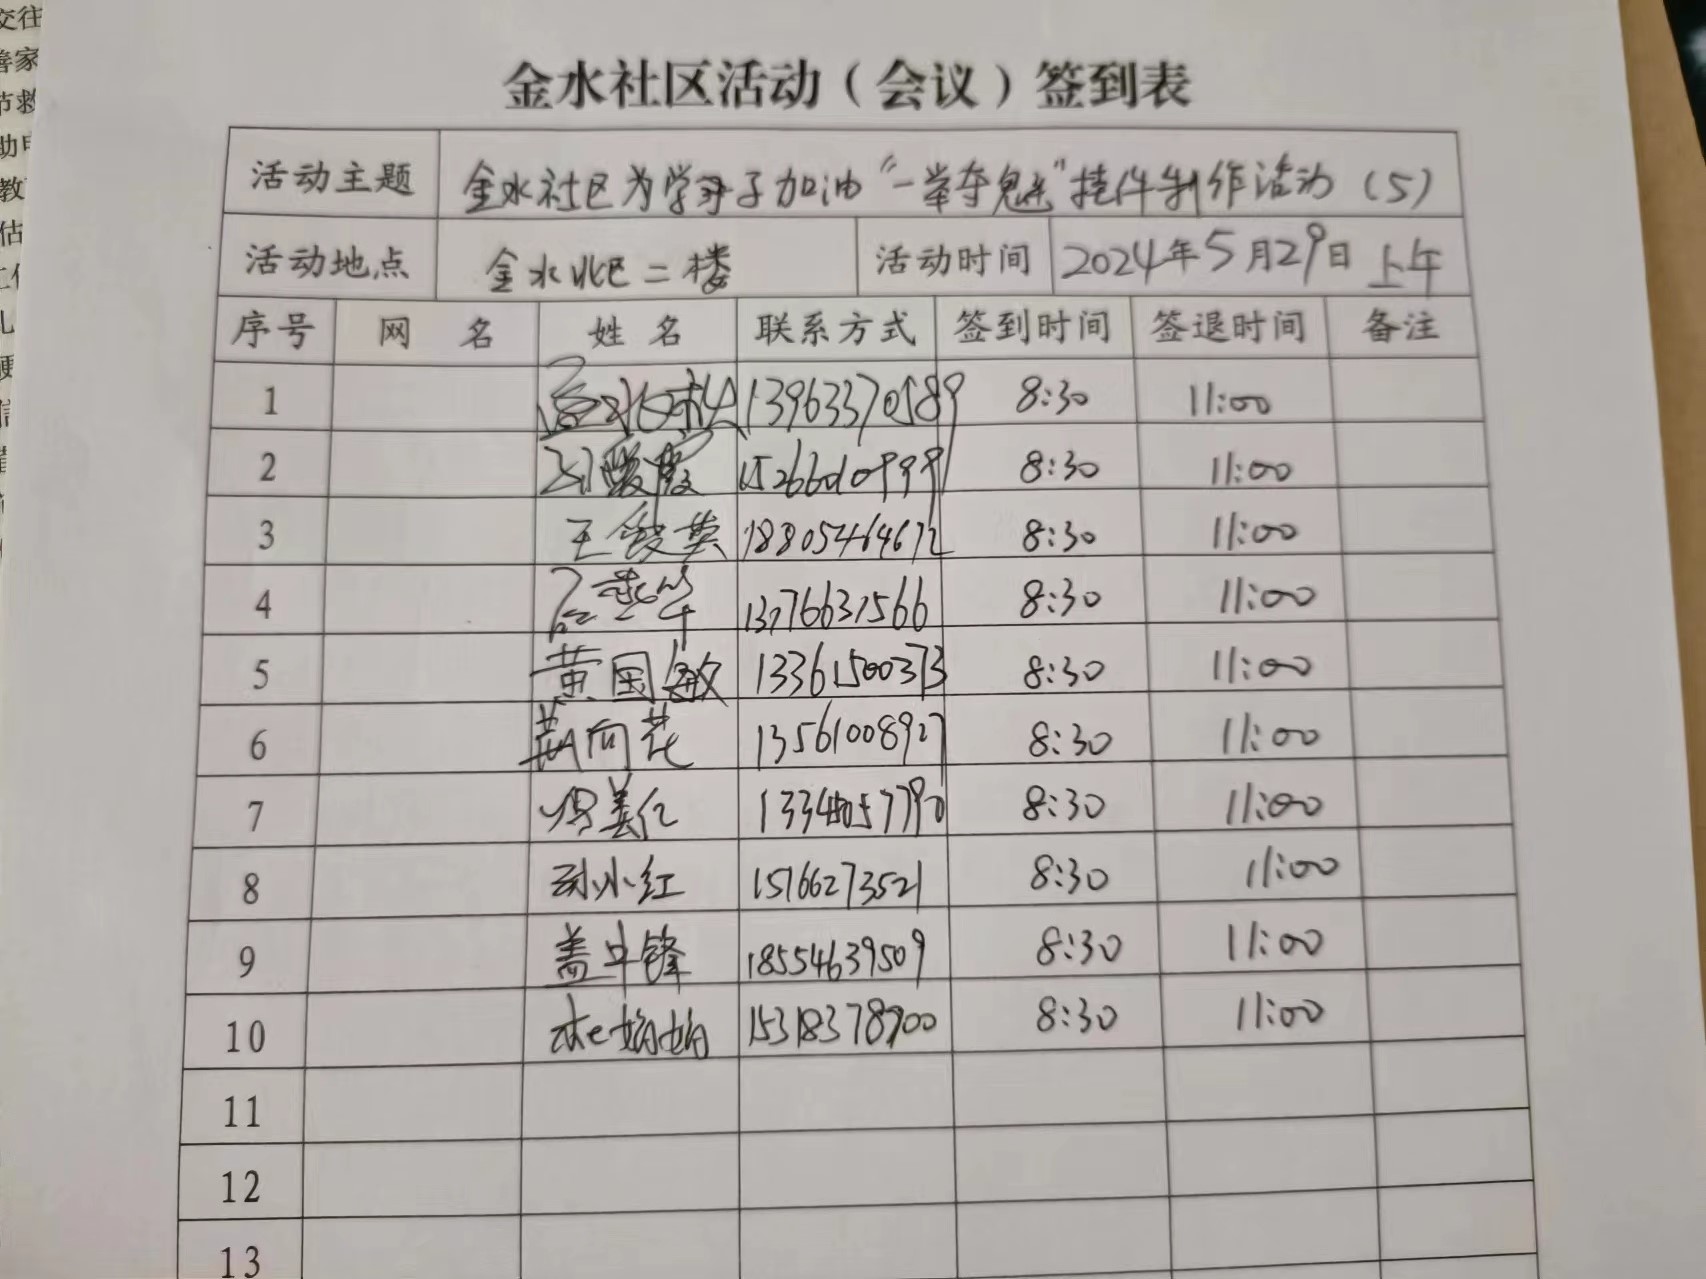 金水社区活动（会议）签到表
活动主题 金水社区为学子加油“一举夺魁”挂件制作活动（5）
活动地点 金水北区二楼 活动时间 2024年5月29日 上午
序号 网 名 姓 名 联系方式 签到时间 签退时间 备注
1 13963370589 8:30 11:00
2 8:30 11:00
3 王爱英 18805464672 8:30 11:00
4 8:30 11:00
5 黄国敏 13361500373 8:30 11:00
6 13561008927 8:30 11:00
7 8:30 11:00
8 孙小红 15166273521 8:30 11:00
9 盖中锋 18554639509 8:30 11:00
10 15318378700 8:30 11:00
11
12
13
交往
善家
节救
教
估